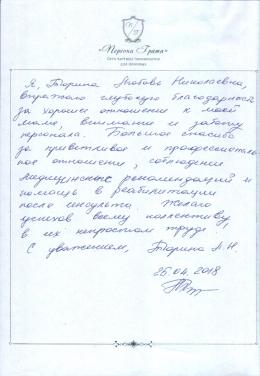 «Перспектива»
Сеть частных пансионатов
для пожилых
Я, Тюрина Любовь Николаевна,
выражаю глубокую благодарность
за хорошее отношение к моей
маме, внимание и заботу
персонала. Большое спасибо
за приветливое и профессиональ
ное отношение, соблюдение
медицинских рекомендаций и
помощь в реабилитации
после инсульта. Желаю
успехов всему коллективу
в их непростом труде!
С уважением, Тюрина Л.Н.
25.04.2018